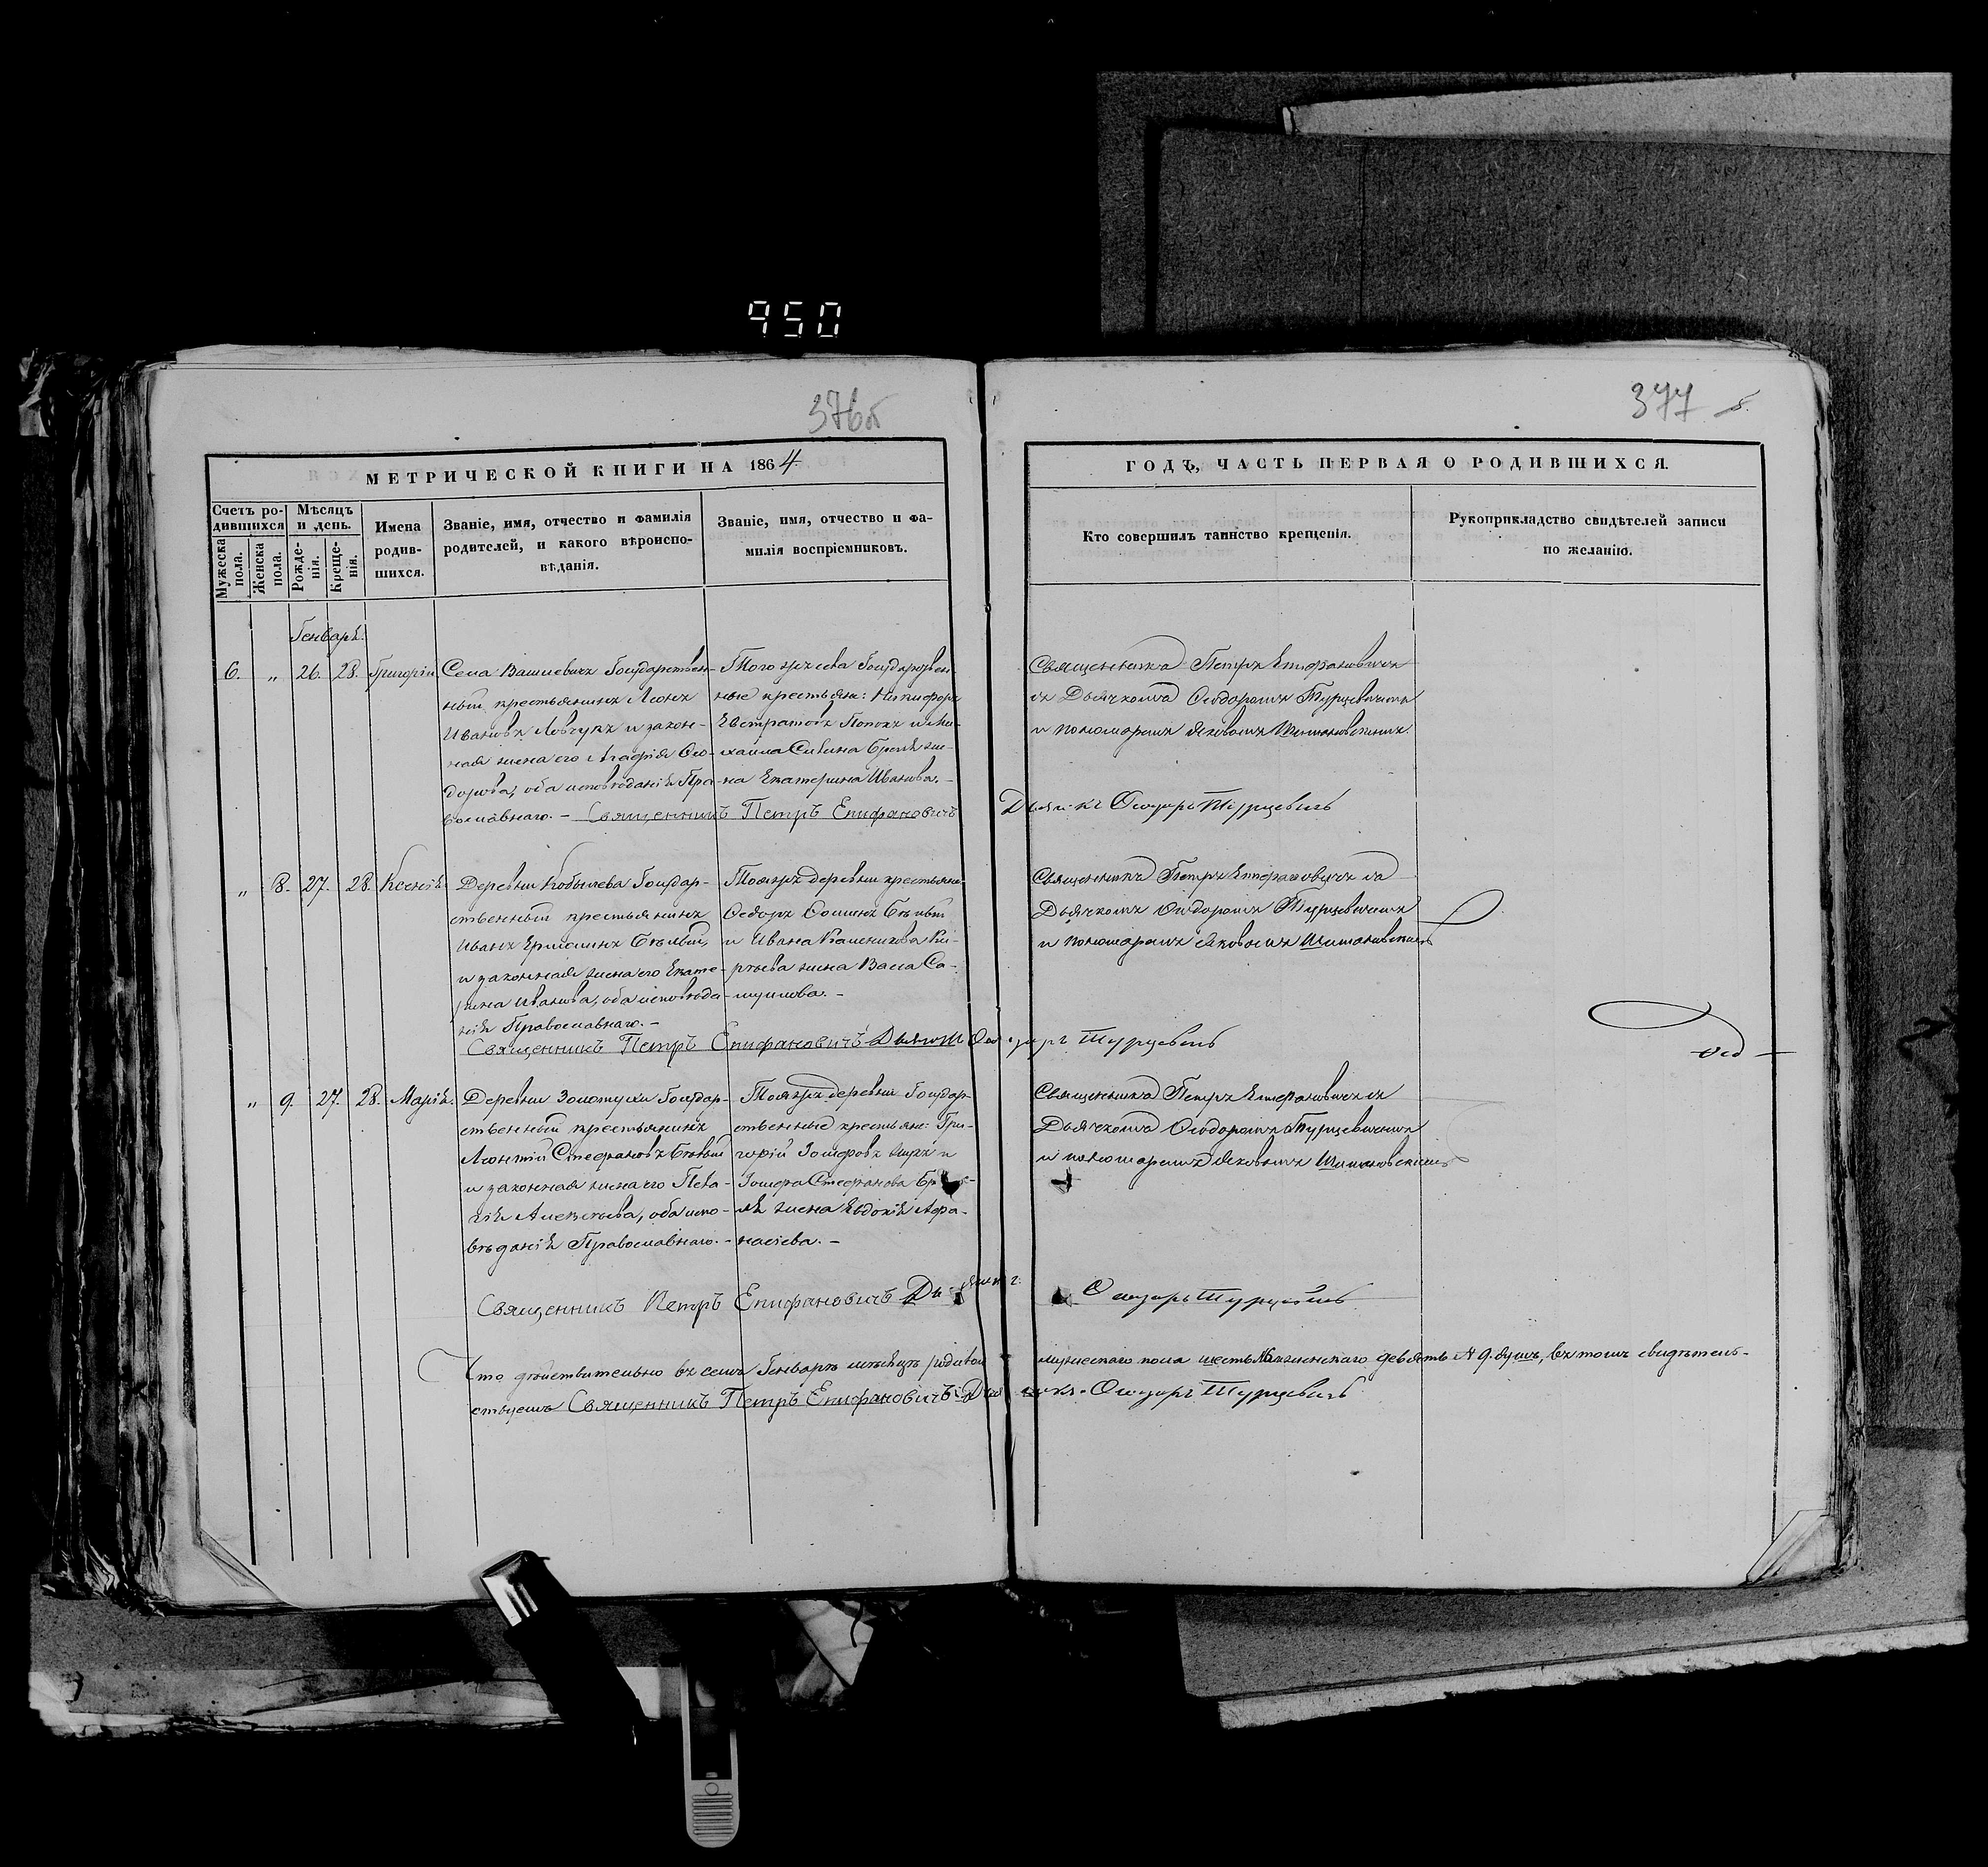 950
376б
377
МЕТРИЧЕСКОЙ КНИГИ НА 1864.
Счетъ ро-
дившихся
Мужеска
пола.
Женска
пола.
Мѣсяцъ
и день.
Рожде-
нія.
Креще-
нія.
Имена
родив-
шихся.
Званіе, имя, отчество и фамилія
родителей, и какого вѣроиспо-
вѣданія.
Званіе, имя, отчество и фа-
милія воспріемниковъ.
ГОДЪ, ЧАСТЬ ПЕРВАЯ О РОДИВШИХСЯ.
Кто совершилъ таинство крещенія.
Рукоприкладство свидѣтелей записи
по желанію.
Генварь.
6. „ 26. 28. Григорій
Села Государствен-
ный крестьянинъ Леонъ
Ивановъ и закон-
ная жена его Агафія Ѳео-
дорова, оба исповѣданія Пра-
вославнаго. – Священникъ Петръ Епифановичъ
Того жъ села Государствен-
ные крестьяне: Никифоръ
Евстратовъ Попокъ и Ми-
хаила Сивина же-
на Екатерина Иванова. –
Священникъ Петръ Епифановичъ
съ Дьячкомъ Ѳеодоромъ Турцевичемъ
и пономаремъ Яковомъ Шимановскимъ.
Дьячекъ Ѳеодоръ Турцевичъ
„ 8. 27. 28. Ксенія
Деревни Кобылева Государ-
ственный крестьянинъ
Иванъ Бѣлый,
и законная жена его Екате-
рина Иванова, оба исповѣда-
нія Православнаго. –
Священникъ Петръ Епифановичъ Дьячокъ Ѳеодоръ Турцевичъ
Тояжъ деревни крестьяне
Ѳедоръ Ѳоминъ Бѣлый
и Ивана
жена Васа Са-
муилова. –
Священникъ Петръ Епифановичъ съ
Дьячкомъ Ѳеодоромъ Турцевичемъ
и пономаремъ Яковомъ Шимановскимъ
„ 9. 27. 28. Марія.
Деревни Золотухи Государ-
ственный крестьянинъ
Леонтій Стефановъ
и законная жена его Пела-
гія Алексѣева, оба испо-
вѣданія Православнаго. –
Тояжъ деревни Государ-
ственные крестьяне: Гри-
горій Іосифовъ и
Іосифа Стефанова
жена Евдокія Афа-
насіева. –
Священникъ Петръ Епифановичъ
Дьячкомъ Ѳеодоромъ Турцевичемъ
и пономаремъ Яковомъ Шимановскимъ
Священникъ Петръ Епифановичъ Дьячекъ Ѳеодоръ Турцевичъ
Что дѣйствительно въ семъ Генварѣ мѣсяцѣ
мужескаго пола шесть № 6. женскаго девять № 9. душъ, въ томъ свидѣтель-
ствуемъ Священникъ Петръ Епифановичъ Дьячекъ Ѳеодоръ Турцевичъ